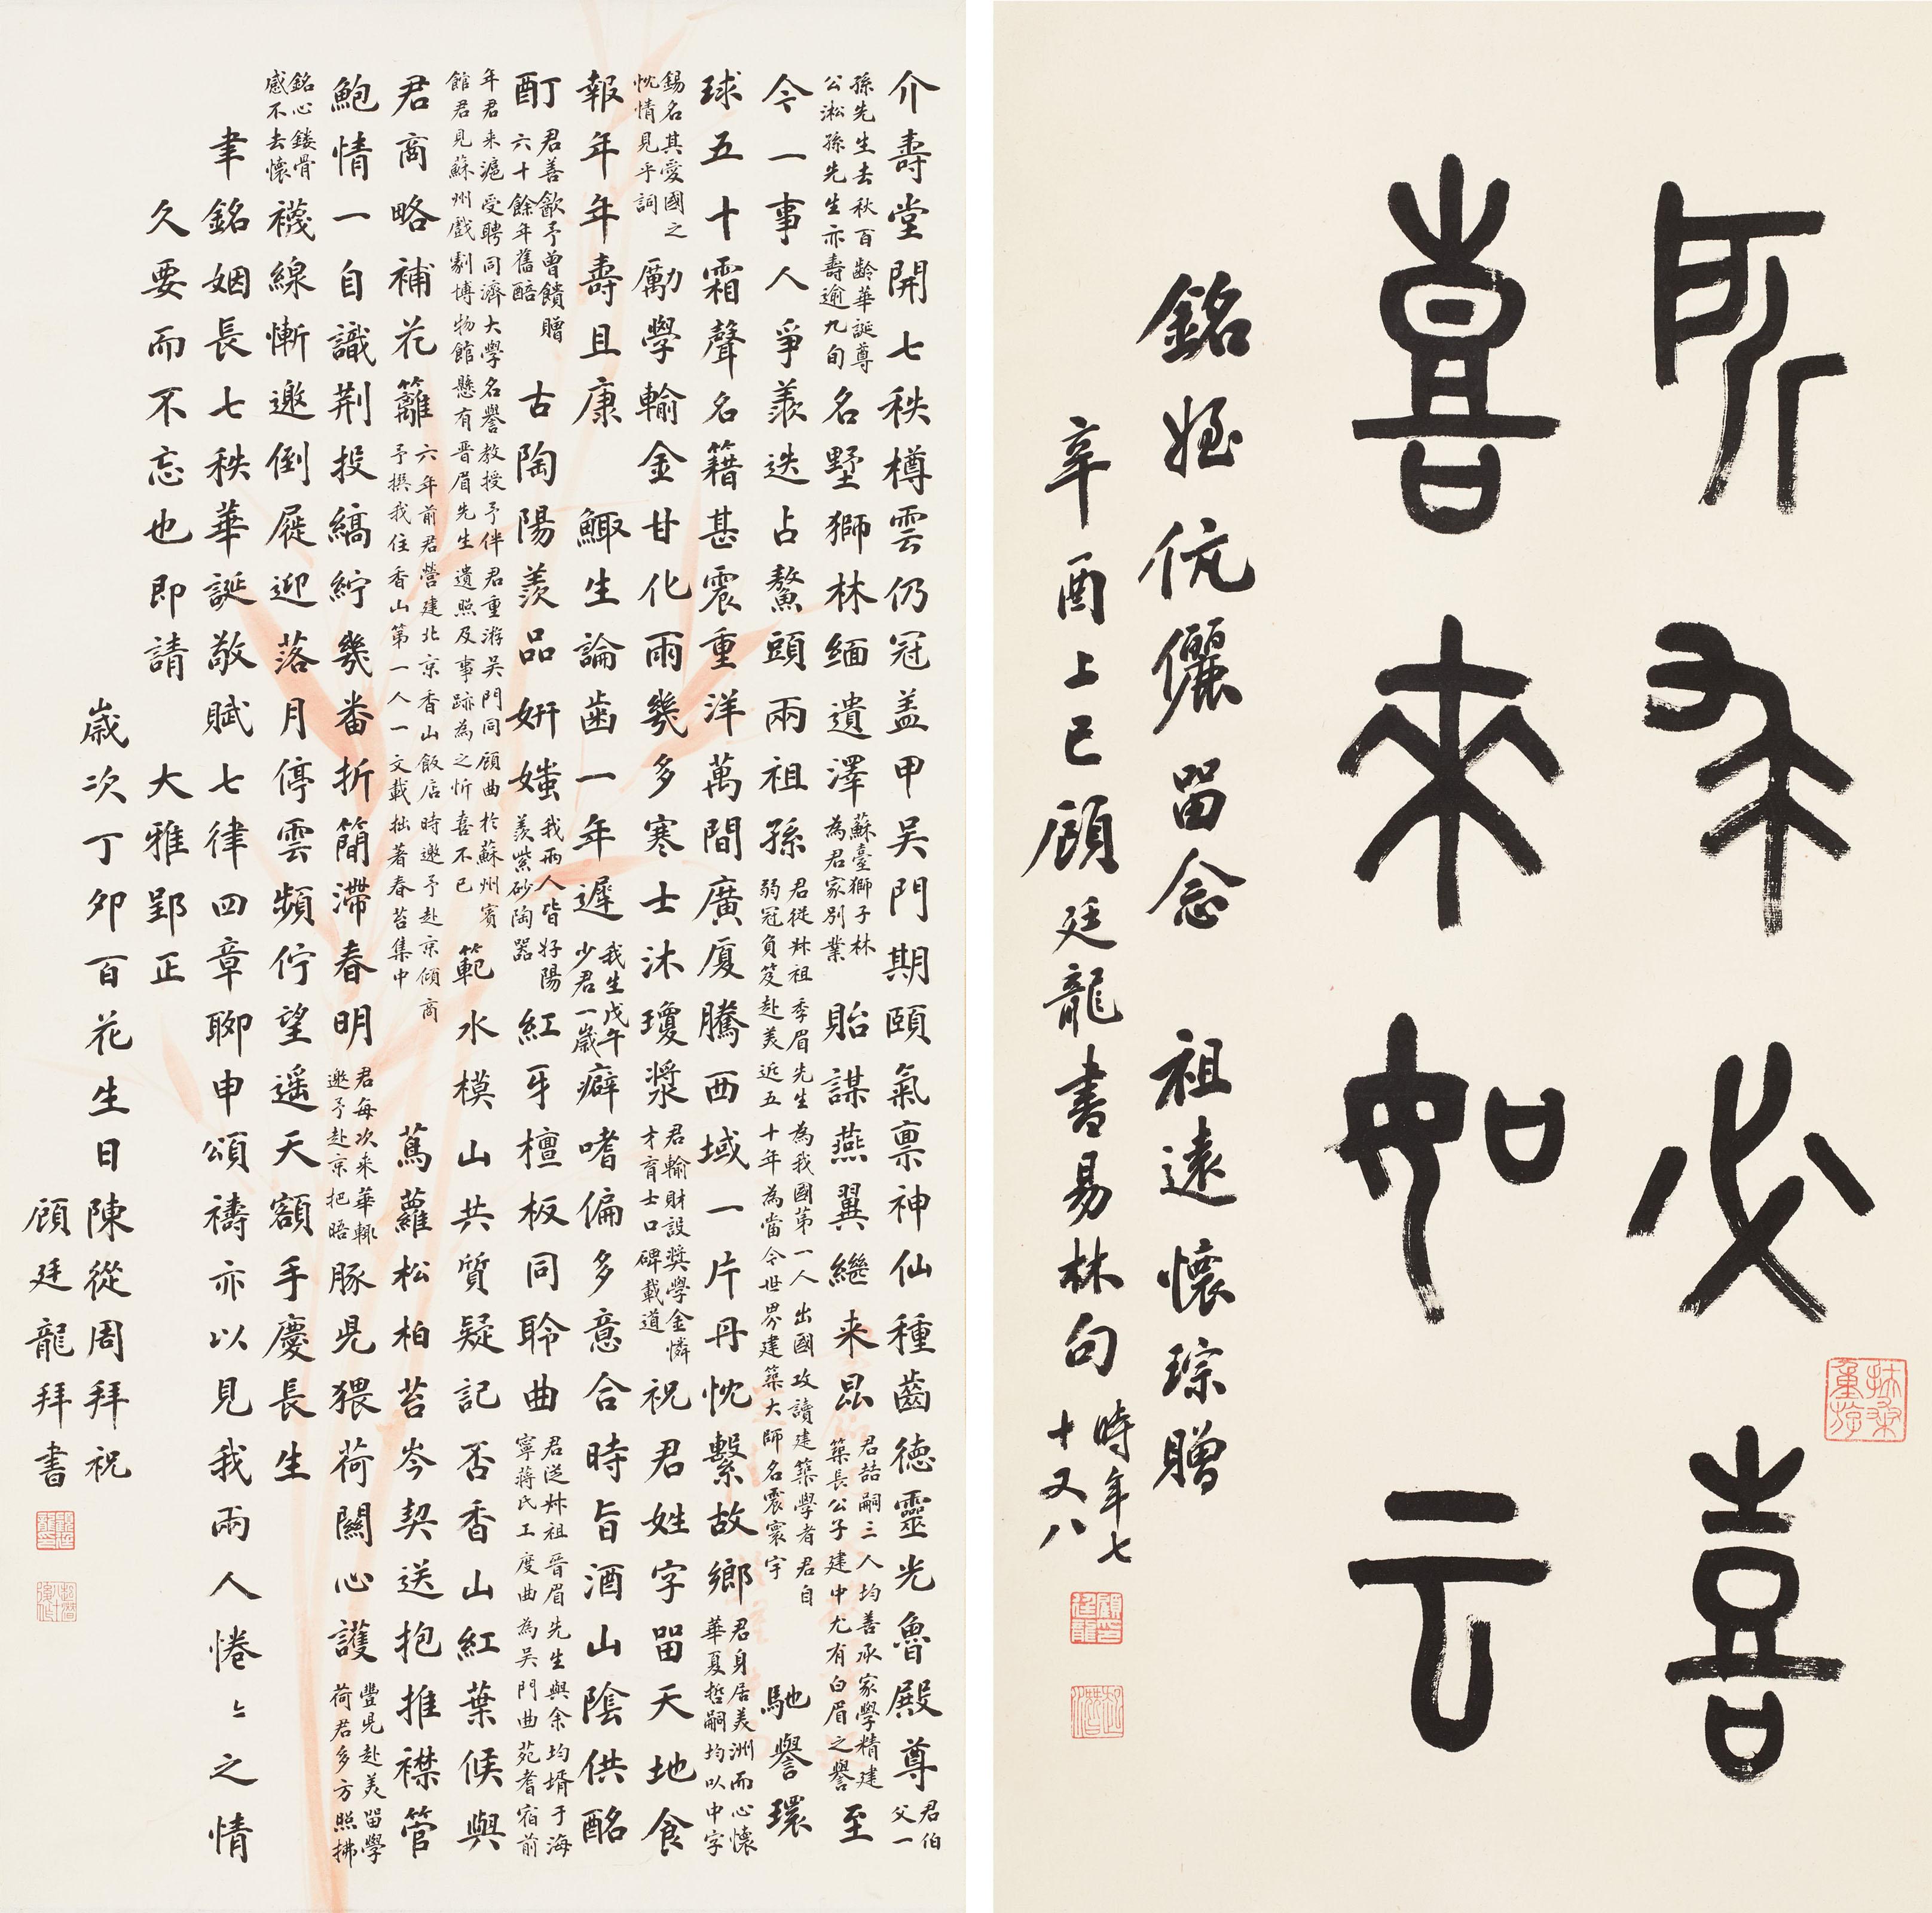 所求必喜
喜來如云
銘姪伉儷留念 祖遠懷琮贈
辛酉上巳顧廷龍書易林句 時年七十又八
顧廷龍
介壽堂開七秩樽雲仍冠盖甲吳門期頤氣禀神仙種齒德靈光魯殿尊 君伯父一
孫先生去秋百齡華誕尊公淞孫先生亦壽逾九旬 名墅獅林緬遺澤 蘇臺獅子林為君家別業 貽謀燕翼繼来昆 君喆嗣三人均善承家學精建築長公子建中尤有白眉之譽 至
今一事人爭羨迭占鰲頭兩祖孫 君從叔祖季眉先生為我國第一人出國攻讀建築學者君自弱冠負笈赴美近五十年為當今世界建築大師名震寰宇 馳譽環
球五十霜聲名籍甚震重洋萬間廣厦騰西域一片丹忱繫故鄉 君身居美洲而心懷華夏哲嗣均以中字
錫名其愛國之忱情見乎詞 勵學輸金甘化雨幾多寒士沐瓊漿 君輸財設奬學金憐才育士口碑載道 祝君姓字留天地食
報年年壽且康 鯫生論齒一年遲 我生戊午少君一歲 癖嗜偏多意合時旨酒山陰供酩
酊 君善飲予曾饋贈六十餘年舊醅 古陶陽羨品妍媸 我兩人皆好陽羨紫砂陶器 紅牙檀板同聆曲 君從叔祖晉眉先生與余均壻于海寧蔣氏工度曲為吳門曲苑耆宿前
年君来滬受聘同濟大學名譽教授予伴君重游吳門同顧曲於蘇州賓館君見蘇州戲劇博物館懸有晉眉先生遺照及事跡為之忻喜不已 範水模山共質疑記否香山紅葉候與
君商略補花籬 六年前君營建北京香山飯店時邀予赴京傾商予撰我住香山第一人一文載拙著春苔集中 蔦蘿松柏苔岑契送抱推襟管
鮑情一自識荆投縞紵幾番折簡滯春明 君每次来華輒邀予赴京把晤 豚兒猥荷關心護 豐兒赴美留學荷君多方照拂
銘心鏤骨感不去懷 襪線慚邀倒屣迎落月停雲頻佇望遥天額手慶長生
聿銘姻長七秩華誕敬賦七律四章聊申頌禱亦以見我兩人惓々之情
久要而不忘也即請 大雅郢正
歲次丁卯百花生日陳從周拜祝
顧廷龍拜書